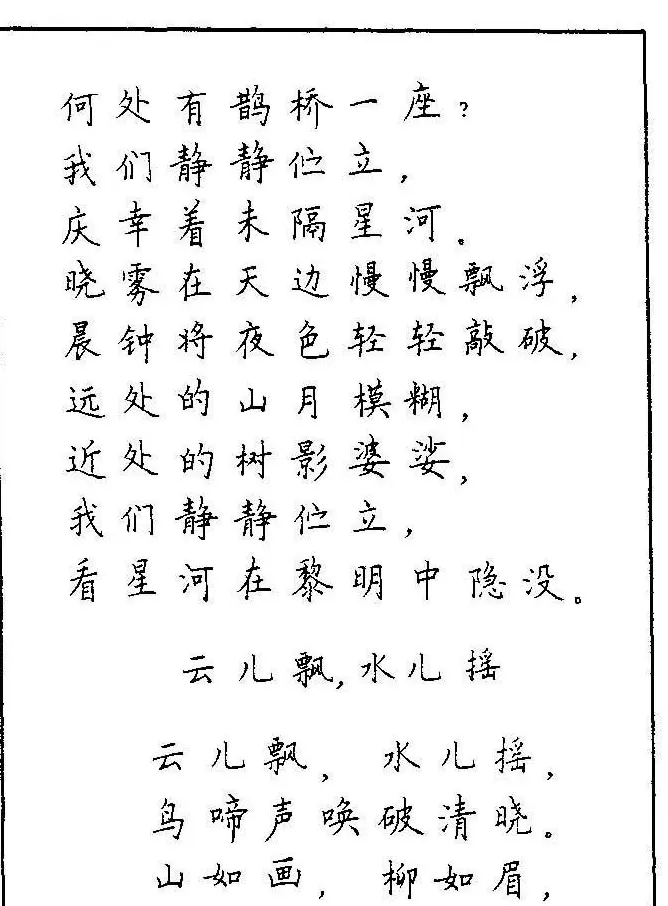 何处有鹊桥一座?
我们静静伫立,
庆幸着未隔星河。
晓雾在天边慢慢飘浮,
晨钟将夜色轻轻敲破,
远处的山月模糊,
近处的树影婆娑,
我们静静伫立,
看星河在黎明中隐没。
云儿飘,水儿摇
云儿飘, 水儿摇,
鸟啼声唤破清晓。
山如画, 柳如眉,